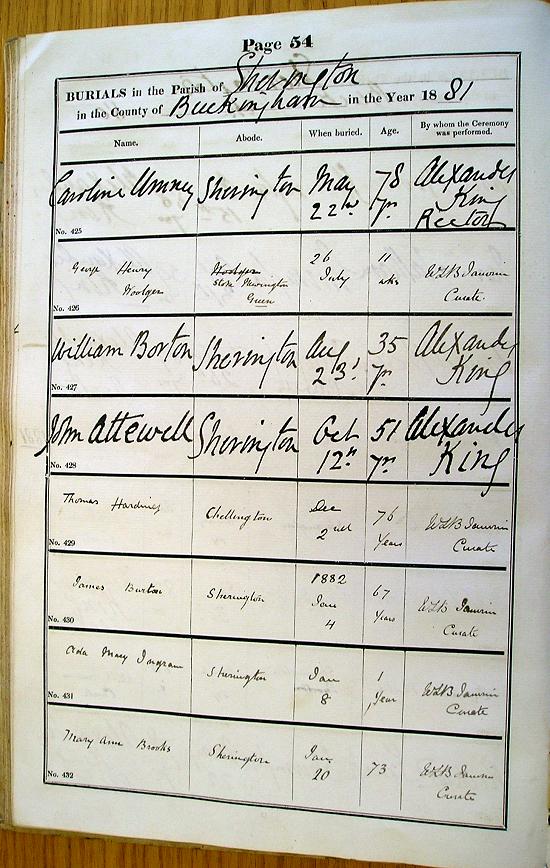 Page 54
BURIALS in the Parish of Sherington
in the County of Buckingham in the Year 18 81
Name. Abode. When buried. Age. By whom the Ceremony was performed.
Caroline Umney Sherington May 22nd 78 yrs Alexander King Rector
No. 425
George Henry Woodger Stoke Newington Green 26 July 11 wks Curate.
No. 426
William Borton Sherington Aug 23d 35 yrs Alexander King
No. 427
John Attewell Sherington Oct 12th 51 yrs Alexander King
No. 428
Thomas Harding Chellington Dec 2nd 76 Years Curate
No. 429
1882
James Burton Sherington Jan 4 67 Years Curate
No. 430
Ada Mary Ingram Sherington Jan 8 1 Year Curate
No. 431
Mary Ann Brooks Sherington Jan 20 73 Curate
No. 432